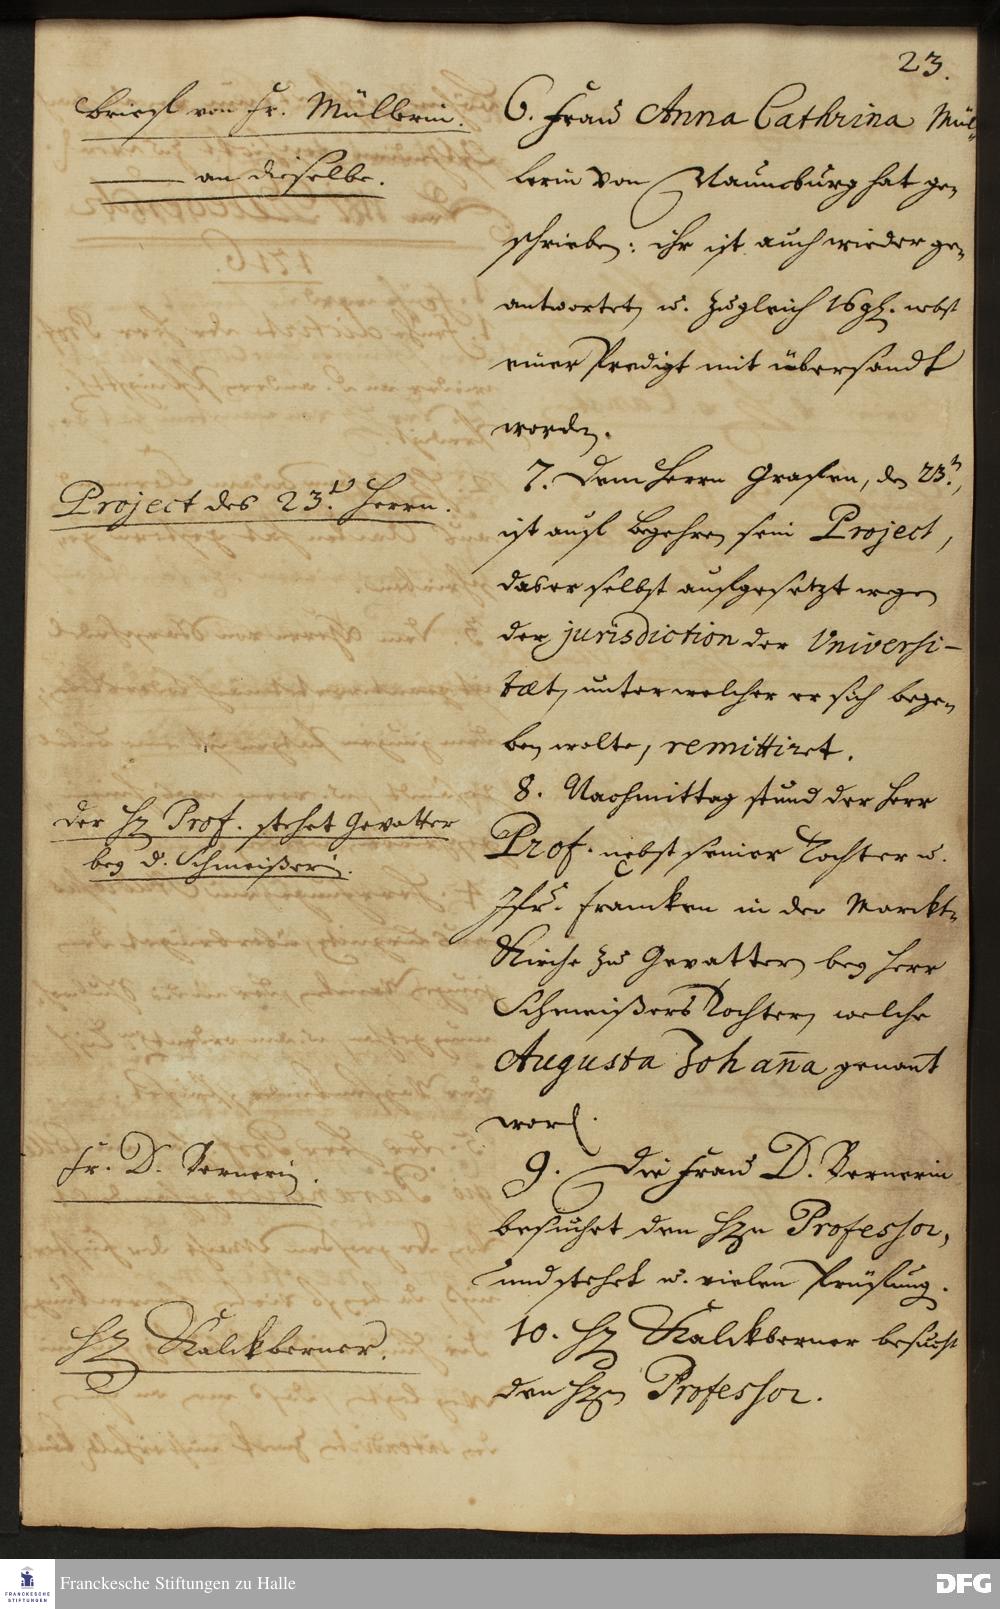 23.
Brieff von Fr. Müllerin.
——— an dieselbe.
6. Frau Anna Cathrina Mül-
lerin von Naumburg hat ge-
schrieben: ihr ist auch wieder ge-
antwortet, u. zugleich 16 gl. nebst
einer Predigt mit übersandt
worden.
Project des 23t. Herrn.
7. Dem Herrn Grafen, den 23.t,
ist auff Begehren sein Project,
das er selbst auffgesetzt wegen
der jurisdiction der Universi-
tæt, unter welcher er sich bege-
ben wolte, remittiret.
Der H Prof. stehet Gevatter
bey d. Schmeißerin.
8. Nachmittag stund der Herr
Prof. nebst seiner Tochter u.
Jfr. Francken in der Marckt-
Kirche zu Gevattern bey Herr
Schmeißers Tochter, welche
Augusta Johan̄a genan̄t
word.
Fr. D.
9. Die Frau D.
besuchet den Hn Professor,
und stehet in vielen Prüfung.
H Kalckberner.
10. H Kalckberner besucht
den Hn Professor.
Franckesche Stiftungen zu Halle
FRANCKESCHE
STIFTUNGEN
DFG